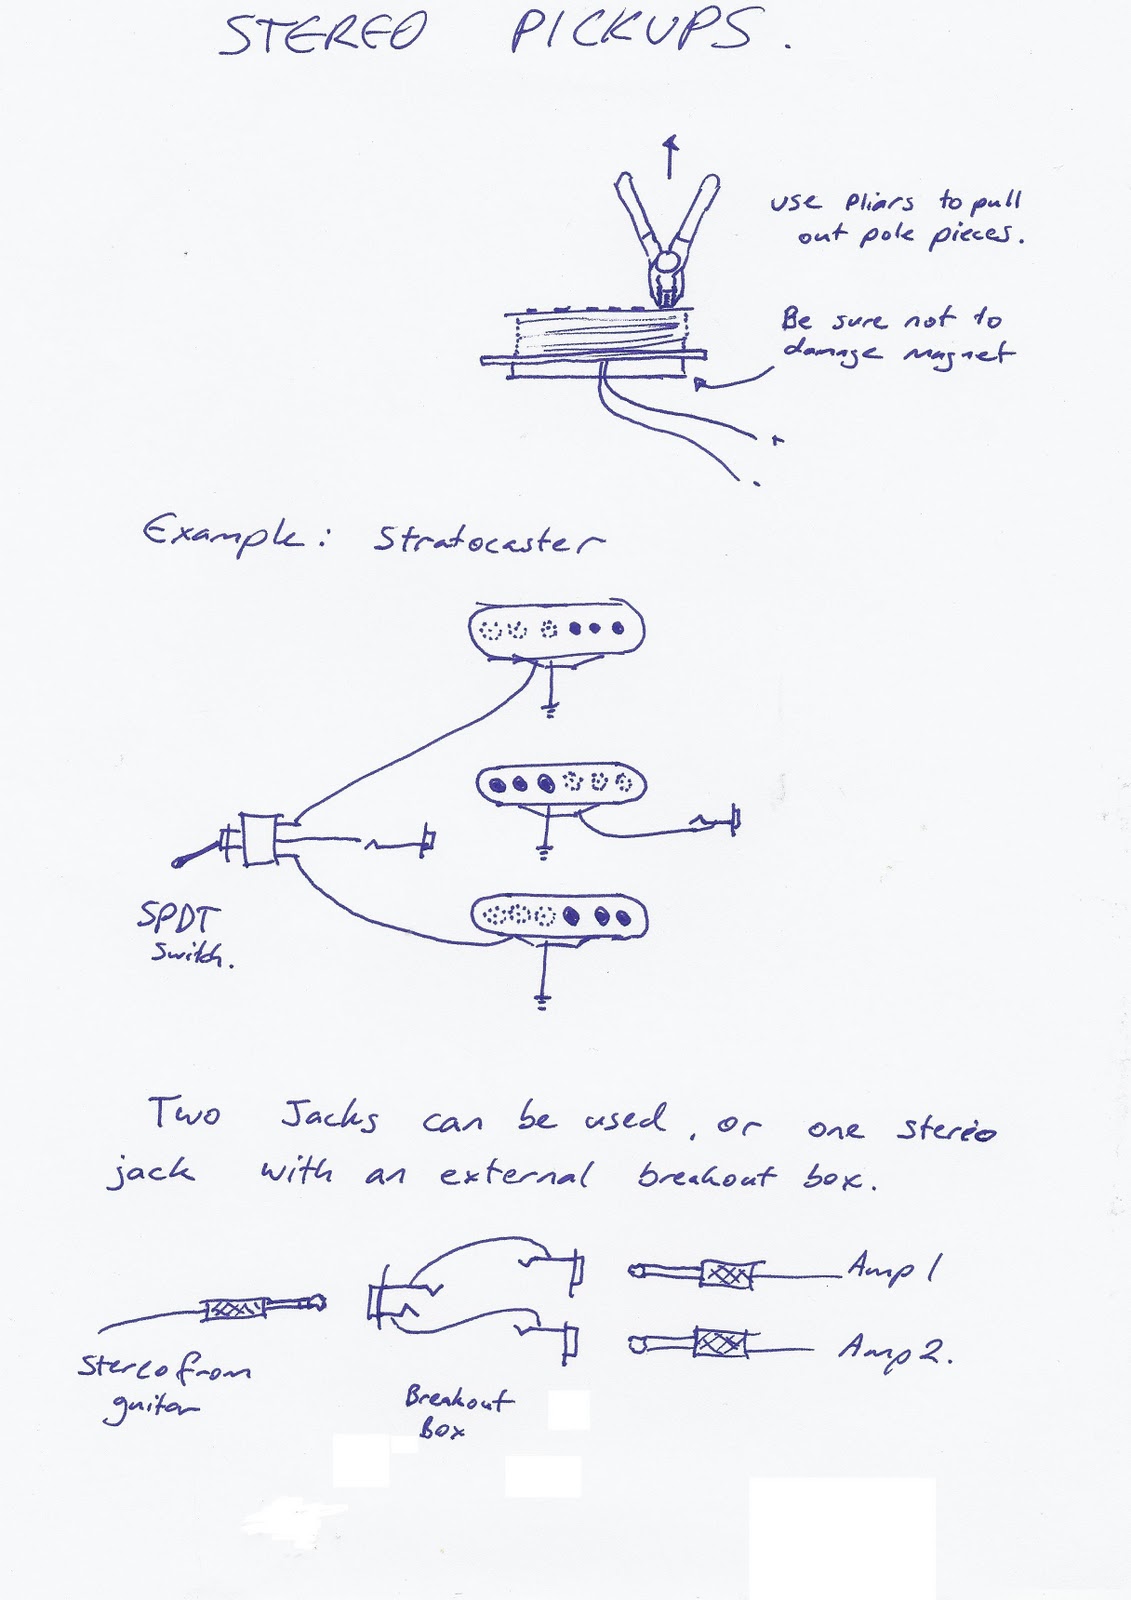 STEREO PICKUPS.
use Pliars to pull
out pole pieces.
Be sure not to
damage magnet
+
-
Example: Stratocaster
SPDT
Switch.
Two Jacks can be used, or one stereo
jack with an external breakout box.
Amp 1
Amp 2.
Stereo from
guitar
Breakout
Box